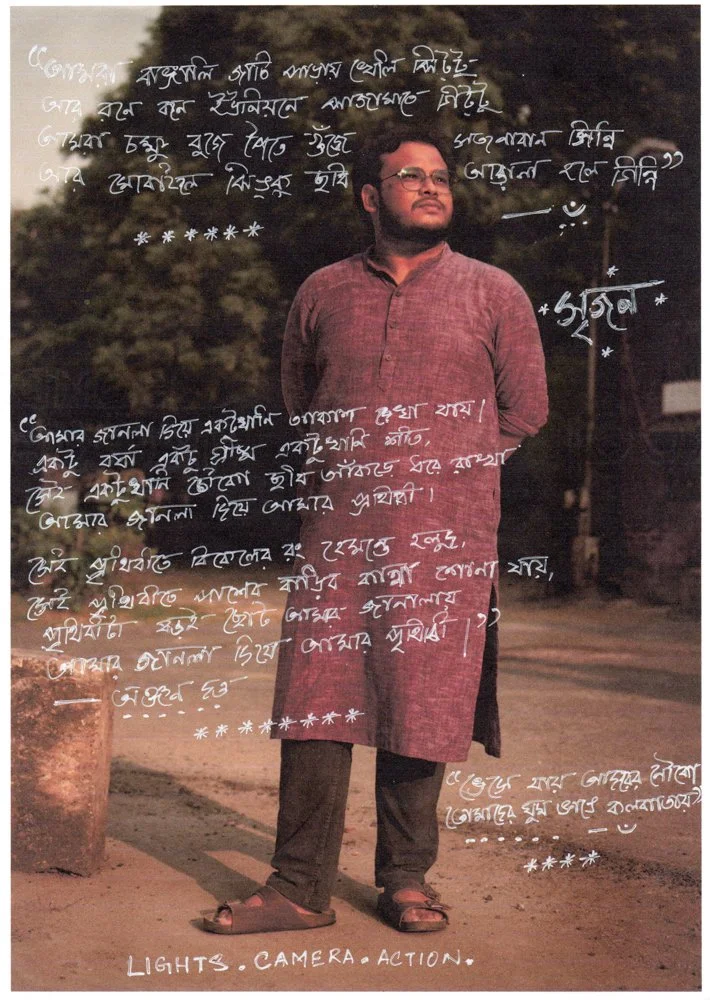 “আমরা বাঙ্গালি জাতি পাড়ায় খেলি পিটটু
আর বনে বনে ইউনিয়নে পাজামাতে গিট্টু
আমরা চক্ষু বুজে পৈতে গুঁজে সত্যনারান সিন্নি
আর মোবাইলে ঝিঙ্কু ছবি আয়লা হলে গিন্নি”
******
*সৃজন*
“আমার জানলা দিয়ে একটুখানি আকাশ দেখা যায়।
একটু বর্ষা একটু গ্রীষ্ম একটুখানি শীত,
সেই একটুখানি চৌকো ছবি আঁকড়ে ধরে রাখা
আমার জানলা দিয়ে আমার পৃথিবী।
সেই পৃথিবীতে বিকেলের রং হেমন্তে হলুদ,
সেই পৃথিবীতে পাশের বাড়ির কান্না শোনা যায়,
পৃথিবীটা বড়ই ছোট আমার জানালায়
আমার জানলা দিয়ে আমার পৃথিবী।”
— অঞ্জন দত্ত
*******
“ভেসে যায় আদরের নৌকো
তোমাদের ঘুম ভাঙে কলকাতায়”
****
LIGHTS. CAMERA. ACTION.